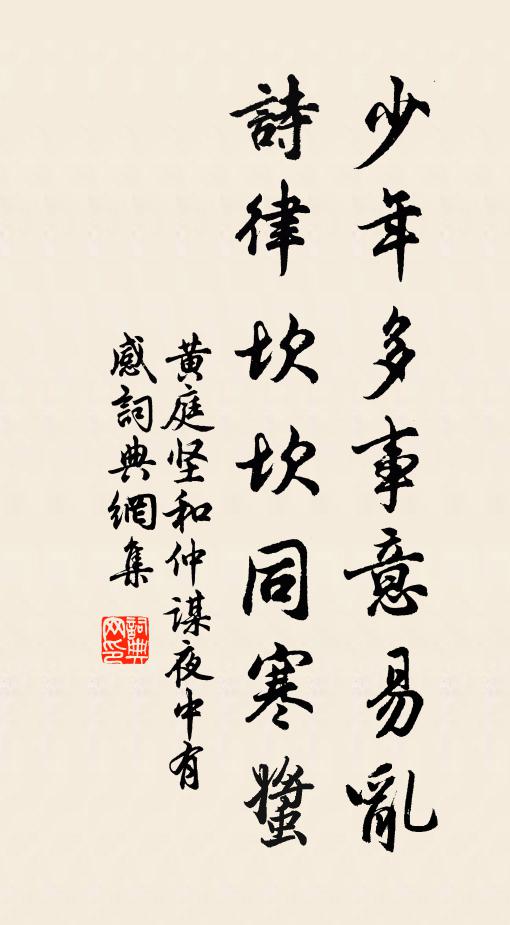 少年多事意易亂
詩律坎坎同寒螿
黄庭坚和仲謀夜中有
感詞典網集
詞典
网印